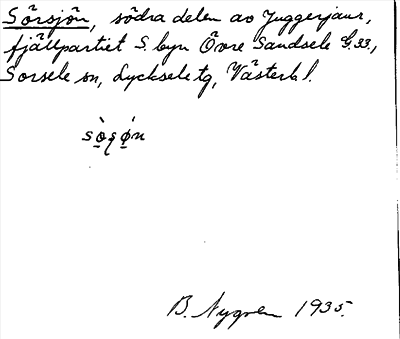 Sörsjön, södra delen av Juggerjaur,
fjällpartiet S. byn Övre Sandsele G. 33.,
Sorsele sn, Lycksele tg, Västerb. l.
sö̀ʂǿn
B. Nygren 1935.